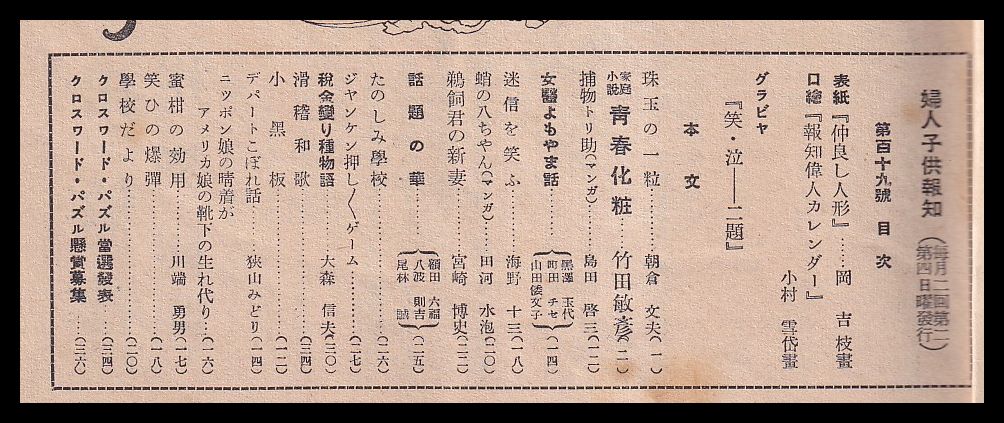 婦人子供報知(毎月二回第二第四日曜發行)
第百十九號 目次
表紙『仲良し人形』…岡 吉枝畫
口繪『報知偉人カレンダー』
小村 雪岱畫
グラビヤ
『笑・泣――二題』
本文
珠玉の一粒………朝倉 文夫(一)
家庭小說 靑春化粧…竹田敏彥(二)
捕物トリ助(マンガ)…島田 啓三(一二)
女醫よもやま話………{黑澤 玉代 町田 チセ 山田倭文子}(一四)
迷信を笑ふ………海野 十三(一八)
蛸の八ちやん(マンガ)…田河 水泡(二〇)
鵜飼君の新妻………宮崎 博史(二二)
話題の華………{顧田 六福 八波 則吉 尾林 誠}(二五)
たのしみ學校………(二六)
ジヤンケン押し〱ゲーム………(二七)
税金變り種物語………大森 信夫(三〇)
滑稽和歌………(三四)
小黑板………(一二)
デパートこぼれ話…狹山みどり(一四)
ニツポン娘の晴着が
アメリカ娘の靴下の生れ代り…(一六)
蜜柑の効用………川端 勇男(一七)
笑ひの爆彈………(一八)
學校だより………(二〇)
クロスワード・パズル當選發表……(三四)
クロスワード・パズル懸賞募集……(三六)